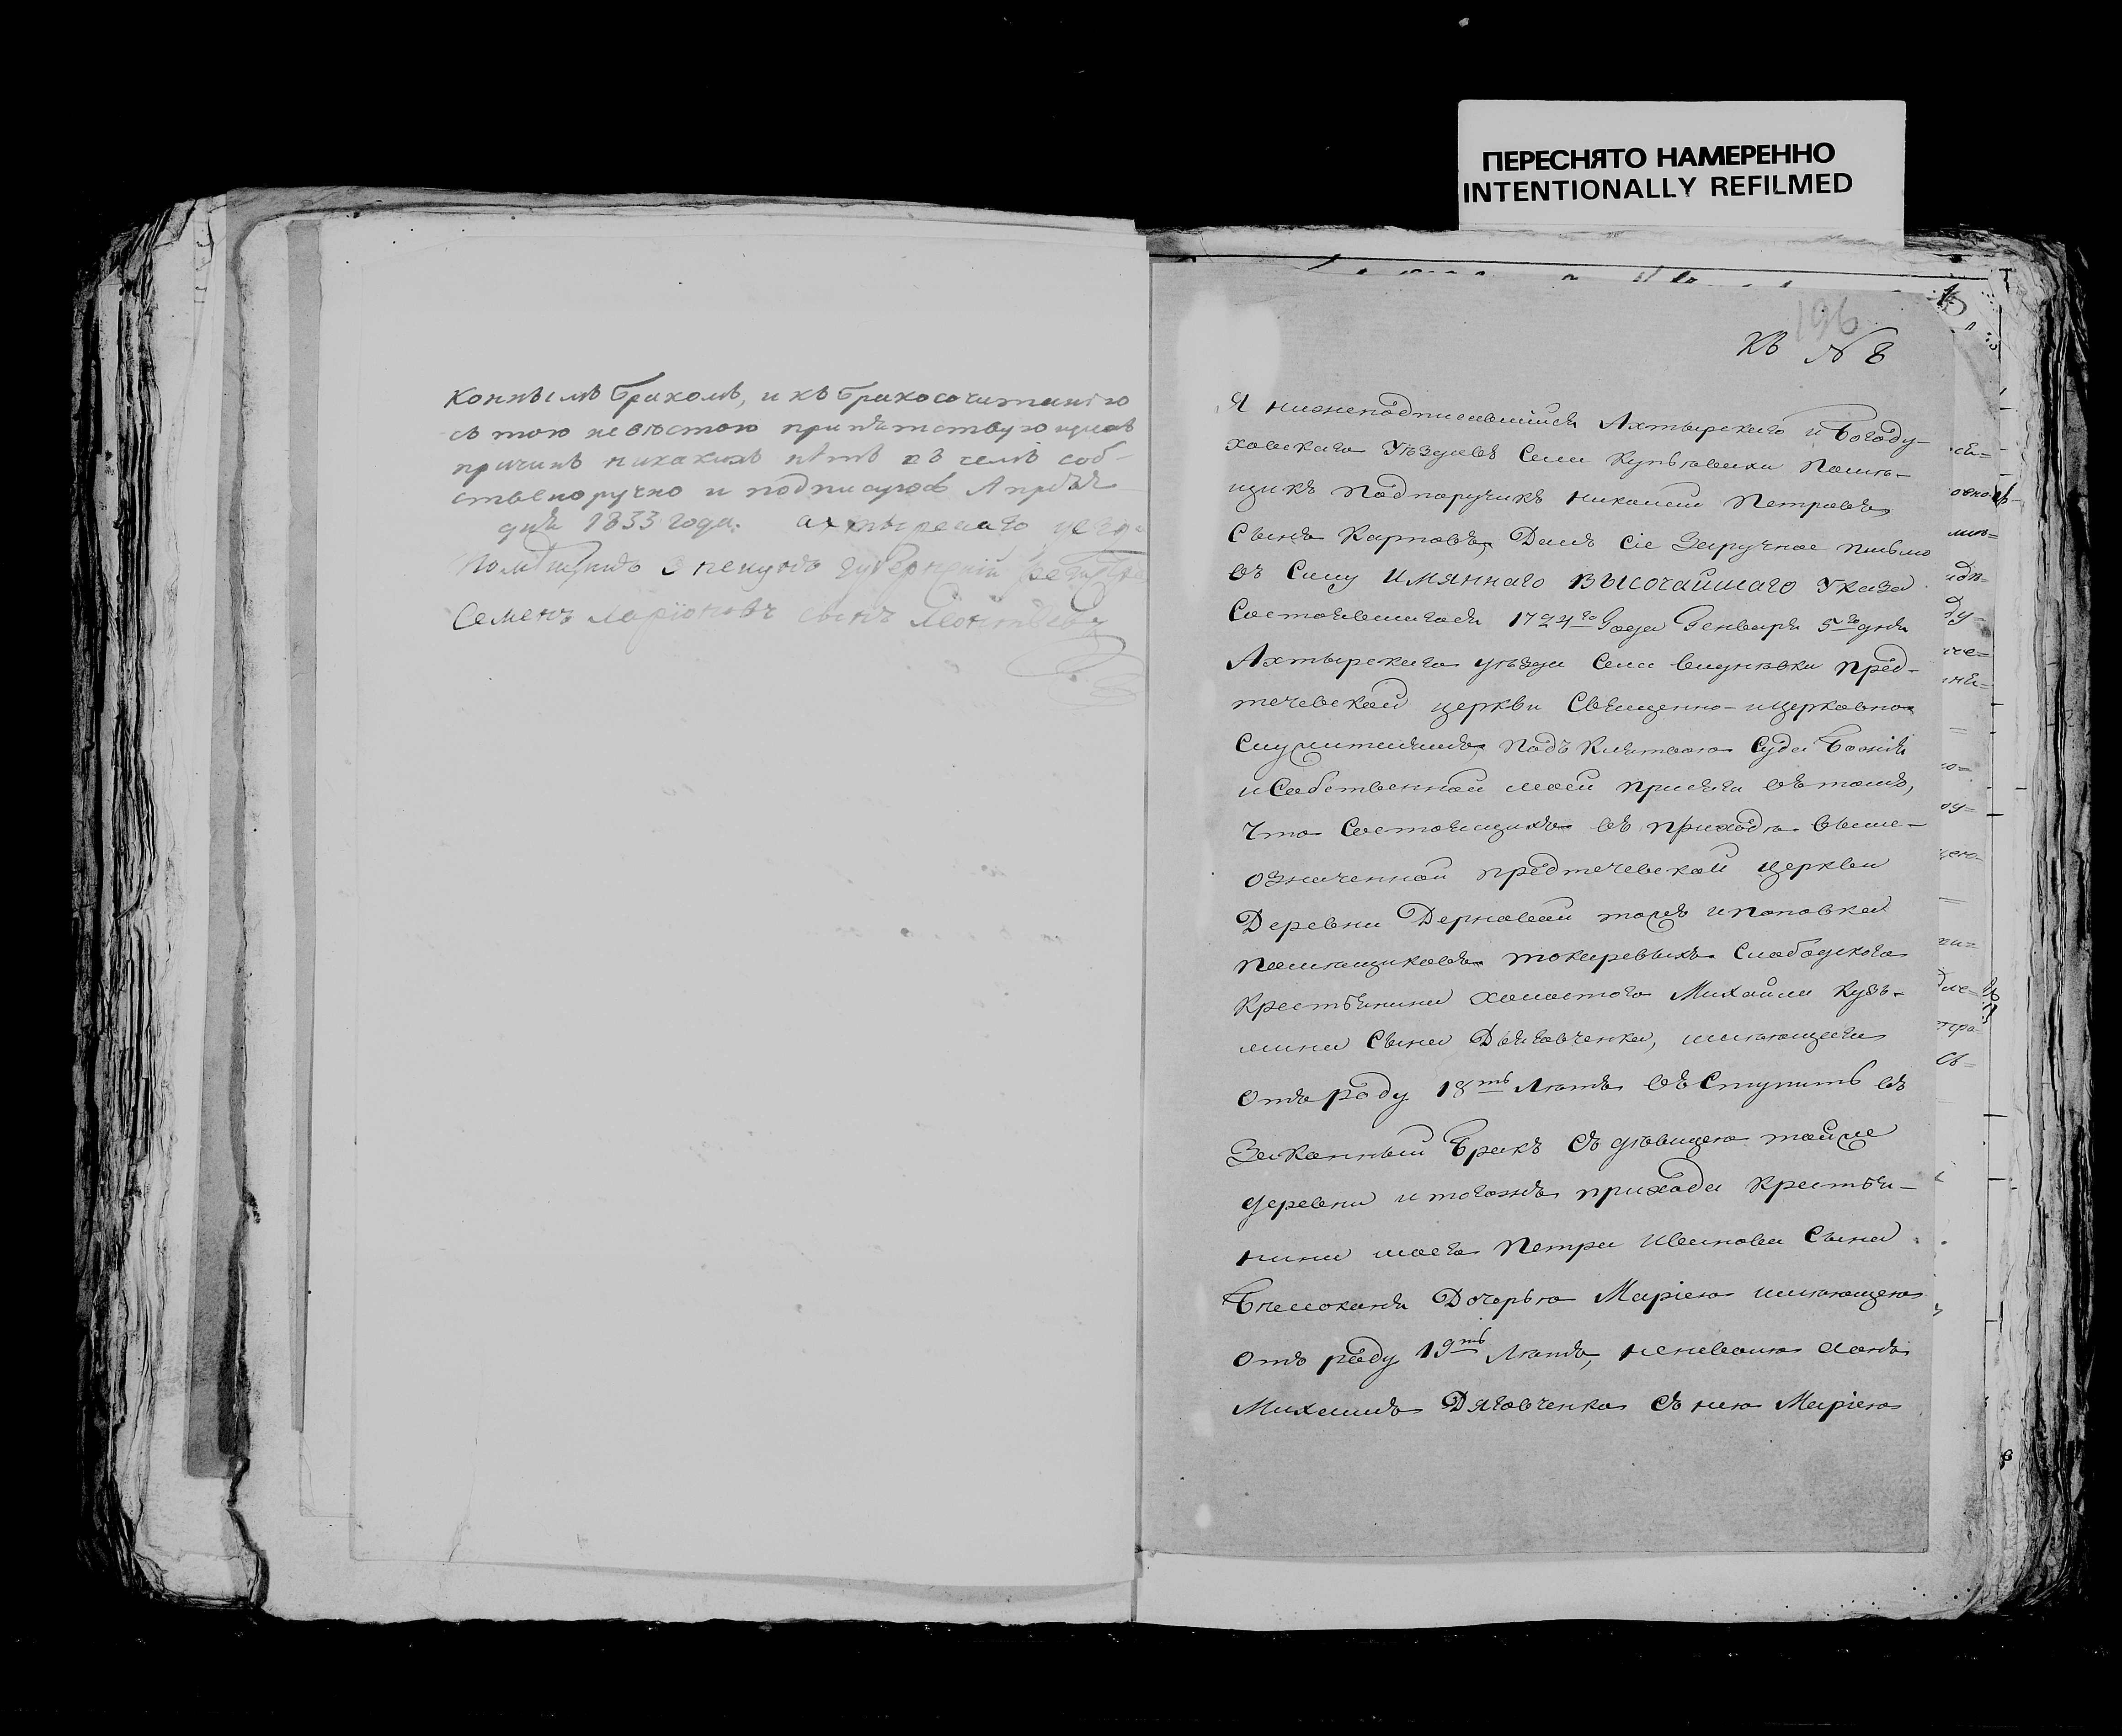 ПЕРЕСНЯТО НАМЕРЕННО
INTENTIONALLY REFILMED
коннымъ бракомъ, и къ бракосочитанію
съ тою невѣстою препятствующихъ
причинъ никакихъ нѣтъ въ чемъ соб-
ственоручно и подписуюсь Апрѣля
дня 1833 года. ахтырскаго
Помѣщикъ Опекунъ губернскій
Семенъ Ларіоновъ сынъ Леонтьевъ
196
къ № 8
Я нижеподписавшійся Ахтырскаго и Богоду-
ховскаго Уѣздовъ Села Купѣевахи Помѣ-
щикъ Подпоручикъ Николай Петровъ
Сынъ Карповъ, Далъ сіе Заручное письмо
въ Силу Имяннаго ВЫСОЧАЙШАГО Указа
Состоявшагося 17 го Года Генваря 5 го дня
Ахтырскаго уѣзда Села Видновки Пред-
течевской церкви Священно-ицерковно
Служителямъ, Подъ Клятвою Суда Божія
и Собственной моей Присяги въ томъ,
Что Состоящихъ въ приходѣ выше-
означенной предтечевской Церкви
Деревни Дерновой тожъ иПоповка
Помѣщиковъ токаревыхъ Слободского
Крестьянина холостого Михайла Кузь-
мина Сына Дяговченка, имѣющего
Отъ роду 18ть Лѣтъ въ Ступить въ
Законный Бракъ Съ дѣвицею тойже
деревни и тогожъ прихода Крестья-
нина моего Петра Иванова Сына
Дочерью Маріею имѣющею
Отъ роду 19ть Лѣтъ,
Михаилъ Дяговченко Съ нею Маріею